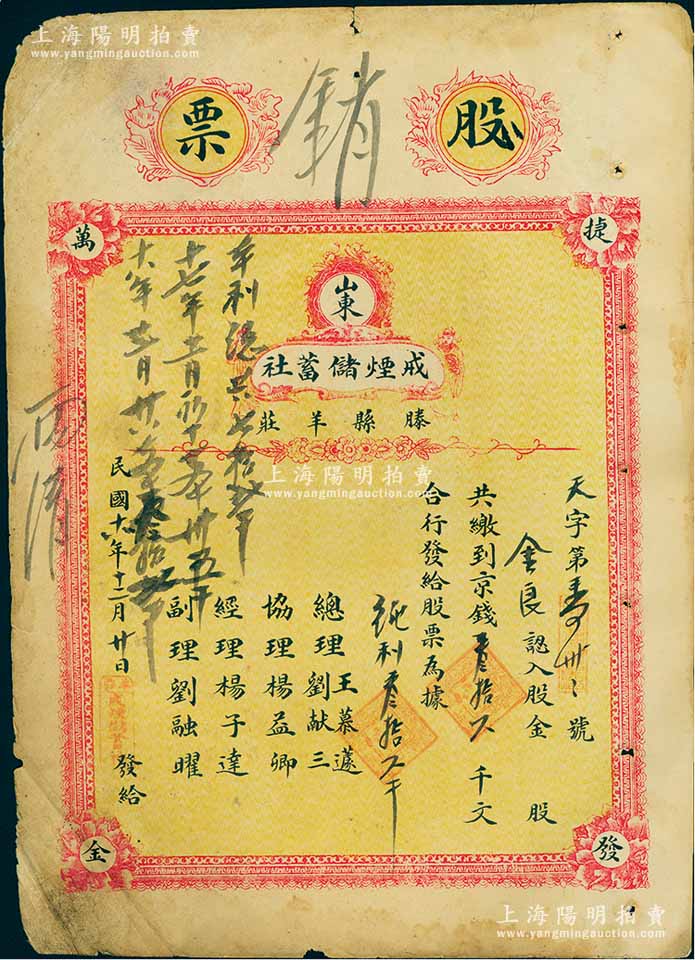 上海陽明拍賣
www.yangmingauction.com
上海陽明拍賣
www.yangmingauction.com
股票
銷
捷發萬金
山東
戒煙儲蓄社
滕縣羊莊
天字第壽卅三號
金良認入股金 股
共繳到京錢叁拾久千文
合行發給股票為據
純利叁拾久千
總理 王慕蘧 劉献三
協理楊益卿
經理楊子達
副理劉融曜
民國十六年十二月廿日
發給
年利總共七拾
十七年二月
十八年
上海陽明拍賣
www.yangmingauction.com
上海陽明拍賣
www.yangmingauction.com